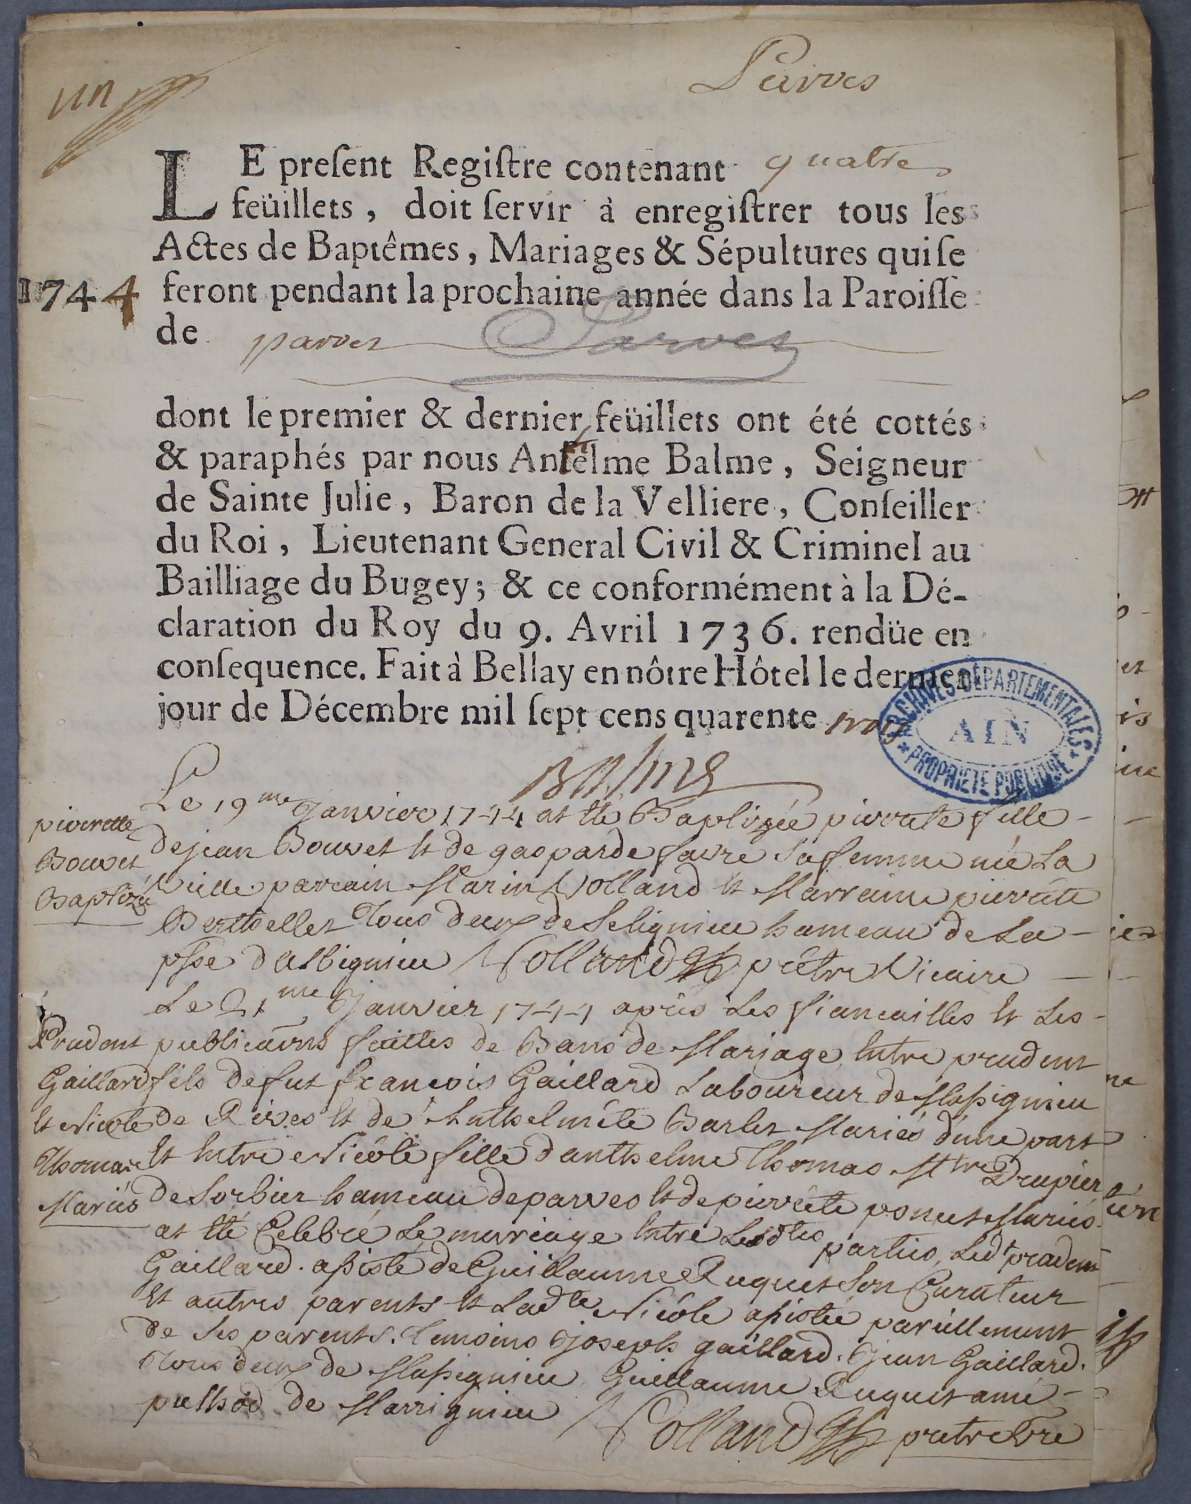 un
Parves
LE preſent Regiſtre contenant quatre
feüillets, doit ſervir à enregiſtrer tous les
Actes de Baptêmes, Mariages & Sépultures qui ſe
1744 feront pendant la prochaine année dans la Paroiſſe
de parves Parves
dont le premier & dernier feüillets ont été cottés
& paraphés par nous Anſelme Balme, Seigneur
de Sainte Julie, Baron de la Velliere, Conſeiller
du Roi, Lieutenant General Civil & Criminel au
Bailliage du Bugey; & ce conformément à la Dé-
claration du Roy du 9. Avril 1736. rendüe en
conſequence. Fait à Bellay en nôtre Hôtel le dernier
jour de Décembre mil ſept cens quarente trois
ARCHIVES DÉPARTEMENTALES
AIN
PROPRIETE PUBLIQUE
Balme
pierrette
Bouvet
Baptizée
Le 19me Janvier 1744 at été Baptizée pierrete fille
de jean Bouvet et de gasparde favre sa femme née La
veille parrain Marin Volland et Marraine pierrete
Berthellet Tous deux de Selignieu hameau de La
psse d'albignieu Volland prêtre Vicaire
Prudent
Gaillard
et Nicole
Thomas
Mariés
Le 21me Janvier 1744 après Les fiancailles et Les
publications faittes de Bans de Mariage Entre prudent
fils de fut françois Gaillard Laboureur de Massignieu
de Rives et de Anthelmete Barlet Mariés d'une part
et Entre Nicole fille d'anthelme Thomas Mtre Drapier
de Sorbier hameau de parves et de pierrete poncet Mariés
at été Celebré Le mariage Entre Lesdtes parties, Ledt prudent
Gaillard assisté de Guillaume Ruguet Son Curateur
Et autres parents et Ladte Nicole assistée pareillement
de Ses parents. Temoins Joseph gaillard. Jean Gaillard.
Tous deux de Massignieu Guillaume Ruguet amé
pelisod de Marrignieu Volland prêtre Vre